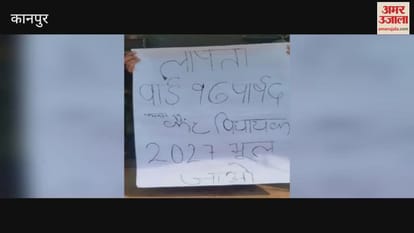 कानपुर
अमर उजाला
amarujala.com
लापता
वार्ड 96 पार्षद
कैंट विधायक
2027 भूल
जाओ